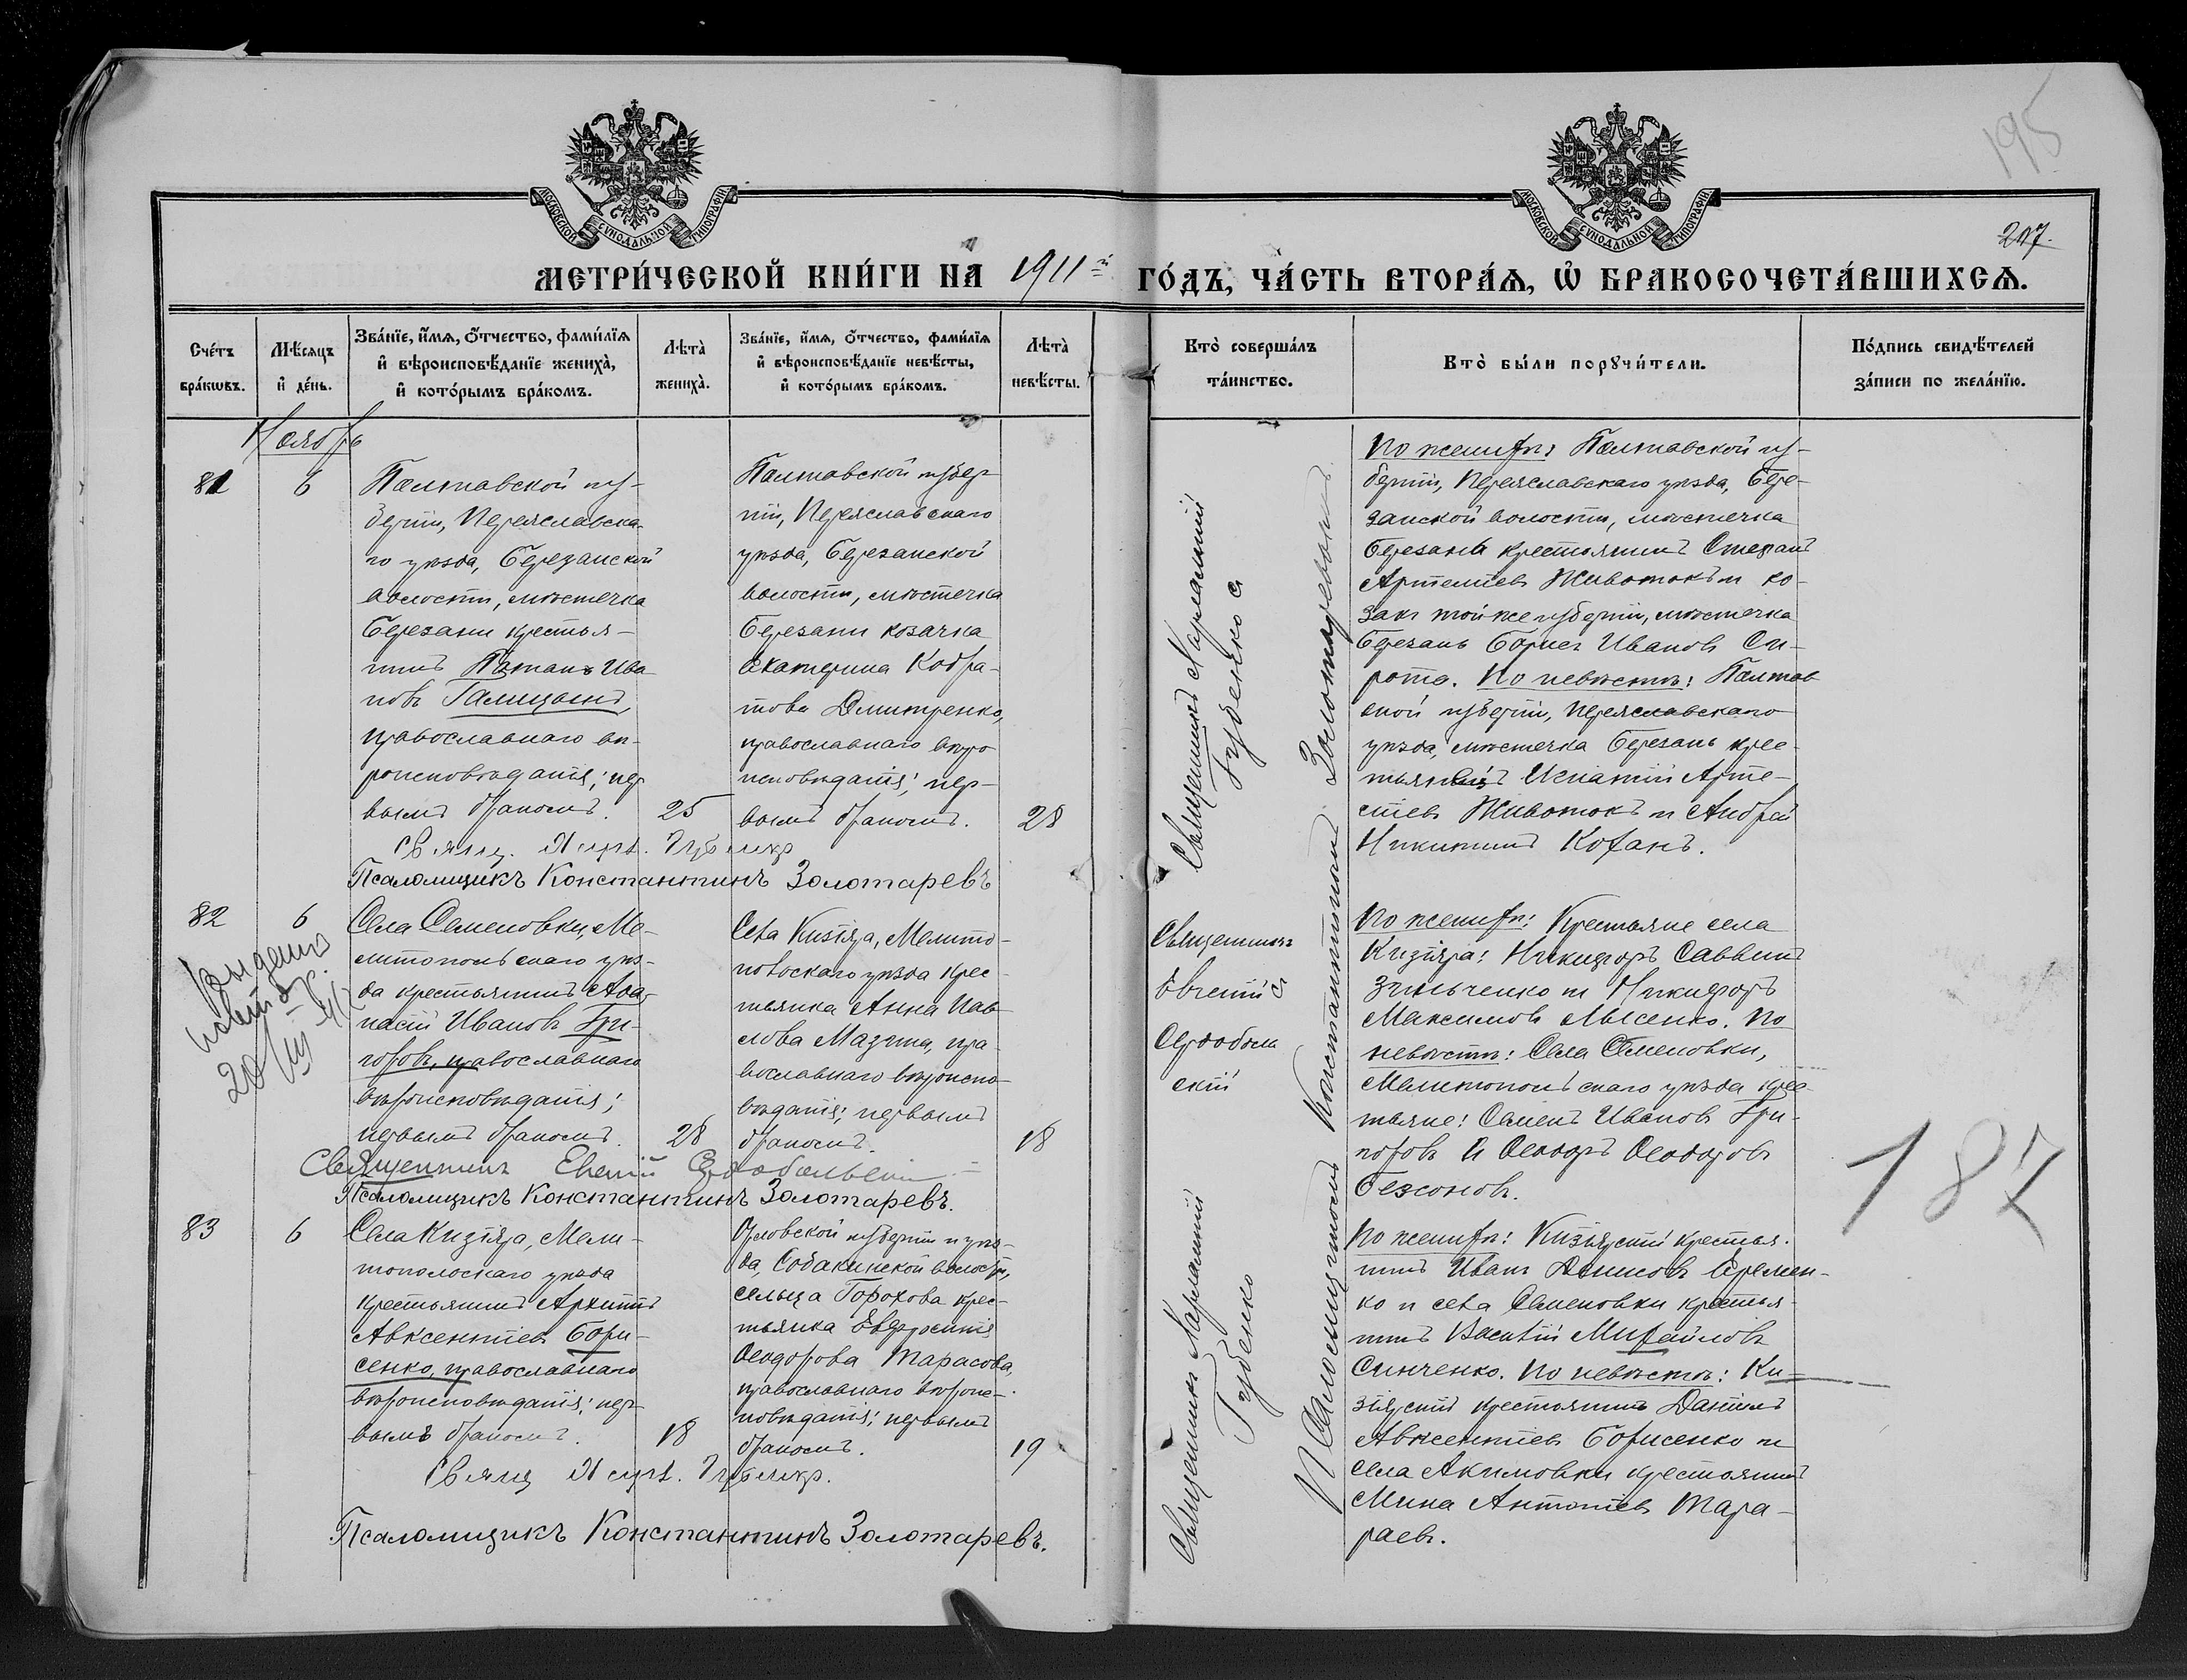 195
207.
МОСКОВСКОЙ СУНОДАЛЬНОЙ ТИПОГРАФІИ
МОСКОВСКОЙ СУНОДАЛЬНОЙ ТИПОГРАФІИ
МЕТРИ́ЧЕСКОЙ КНИ́ГИ НА 1911й ГО́ДЪ, ЧА́СТЬ ВТОРА́Ѧ, Ѡ҆ БРАКОСОЧЕТА́ВШИХСѦ.
Сче́тъ
бра́кѡвъ.
Мѣ́сяцъ
и҆ де́нь.
Зва́нїе, и҆́мѧ, ѻ҆́тчество, фами́лїѧ
и҆ вѣроисповѣ́данїе жениха̀,
и҆ кото́рымъ бра́комъ.
Лѣта̀
жениха̀.
Зва́нїе, и҆́мѧ, ѻ҆́тчество, фами́лїѧ
и҆ вѣроисповѣ́данїе невѣ́сты,
и҆ кото́рымъ бра́комъ.
Лѣта̀
невѣ́сты.
Кто̀ соверша́лъ
та́инство.
Кто̀ бы́ли порꙋчи́тели.
По́дпись свидѣ́телей
за́писи по жела́нїю.
Ноябрь
81
6
Полтавской гу-
берніи, Переяславска-
го уѣзда, Березанской
волости, мѣстечка
Березани крестья-
нинъ Потапъ Ива
новъ Галицанъ,
православнаго вѣ-
роисповѣданія; пер
вымъ бракомъ.
25
Полтавской губер
ніи, Переяславскаго
уѣзда, Березанской
волости, мѣстечка
Березани козачка
Екатерина Кодра-
това Дмитренко,
православнаго вѣро
исповѣданія; пер-
вымъ бракомъ.
28
Священникъ Харлампій
Губенко
По женихѣ: Полтавской гу-
берніи, Переяславскаго уѣзда, Бере-
занской волости, мѣстечка
Березани крестьянинъ Стефанъ
Артеміевъ Животокъ и ко-
закъ той же губерніи, мѣстечка
Березань Борисъ Ивановъ Си-
рота. По невѣстѣ: Полтав
ской губерніи, Переяславскаго
уѣзда, мѣстечка Березань крес-
тьянинъ Игнатій Арте-
міевъ Животокъ и Андрей
Никитинъ Коханъ.
Псаломщикъ Константинъ Золотаревъ
82
6
Выдана
20/III
Села Семеновки, Ме-
литопольскаго уѣз-
да крестьянинъ Аѳа-
насій Ивановъ Гри-
горовъ, православнаго
вѣроисповѣданія;
первымъ бракомъ.
28
Села Кизіяра, Мелито-
польскаго уѣзда крес-
тьянка Анна Пав-
лова Мазина, пра
вославнаго вѣроиспо-
вѣданія; первымъ
бракомъ.
18
Священникъ
Евгеній
Сердоболь
скій
По женихѣ: Крестьяне села
Кизіяра: Никифоръ Саввинъ
Зинченко и Никифоръ
Максимовъ Лысенко. По
невѣстѣ: Села Семеновки,
Мелитопольскаго уѣзда крес-
тьяне: Семенъ Ивановъ Гри-
горовъ и Ѳеодоръ Ѳеодоровъ
Безсоновъ.
187
Священникъ Евгеній Сердобольскій
Псаломщикъ Константинъ Золотаревъ.
83
6
Села Кизіяра, Мели-
топольскаго уѣзда
крестьянинъ Архипъ
Авксентіевъ Бори-
сенко, православнаго
вѣроисповѣданія; пер-
вымъ бракомъ.
18
Орловской губерніи и уѣз-
да, Собакинской волости,
сельца Горохова крес-
тьянка Евфросинія
Ѳеодорова Тарасова,
православнаго вѣроис-
повѣданія; первымъ
бракомъ.
19
Священникъ Харлампій
Губенко
По женихѣ: Кизіярскій крестья-
нинъ Иванъ Денисовъ Яремен-
ко и села Семеновки крестья
нинъ Василій Михайловъ
Синченко. По невѣстѣ: Ки-
зіярскій крестьянинъ Даніилъ
Авксентіевъ Борисенко и
села Акимовки крестьянинъ
Мина Антоніевъ Тара-
раевъ.
Псаломщикъ Константинъ Золотаревъ
Псаломщикъ Константинъ Золотаревъ.